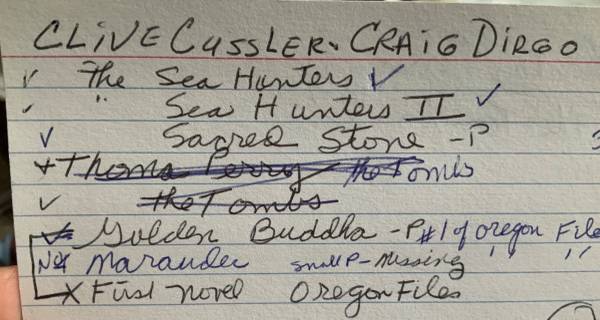 CLIVE CUSSLER. CRAIG DIRGO
✓ The Sea Hunters ✓
✓ " Sea Hunters II ✓
✓ Sacred Stone -P
Thomas Perry the Tombs
✓ the Tombs
Golden Buddha -P #1 of Oregon File
Marauder small P-Missing " "
X First Novel Oregon Files